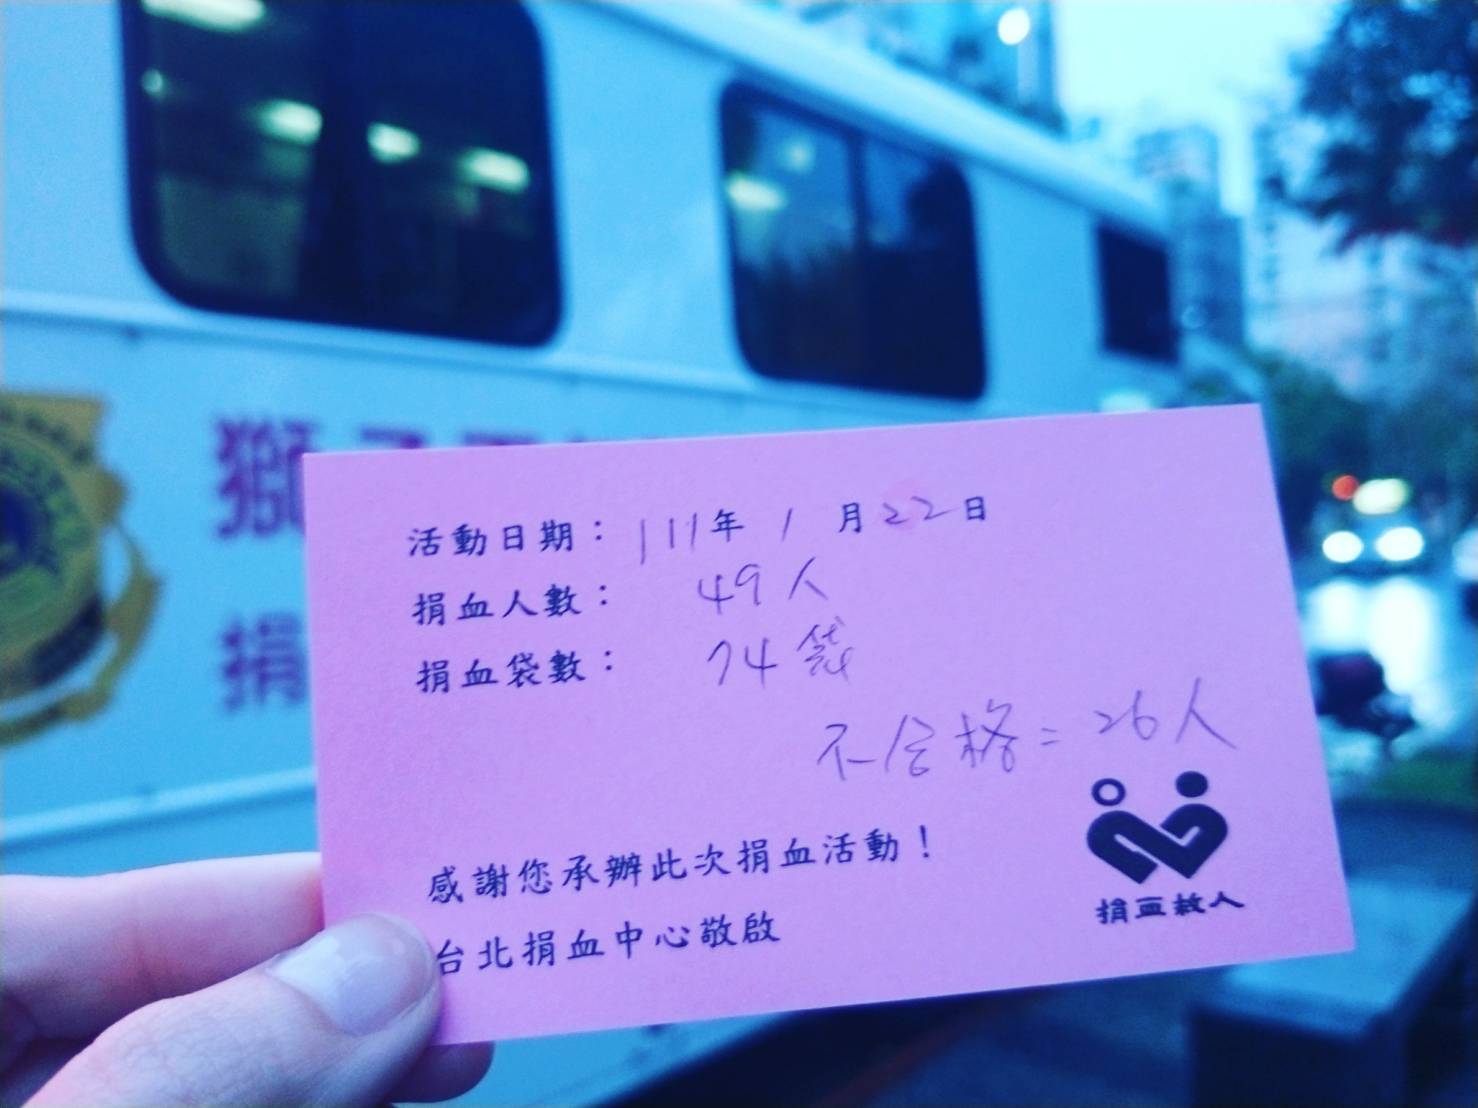 獅
捐
活動日期：111年 1 月22日
捐血人數： 49人
捐血袋數： 74袋
不合格=26人
捐血救人
感謝您承辦此次捐血活動！
台北捐血中心敬啟